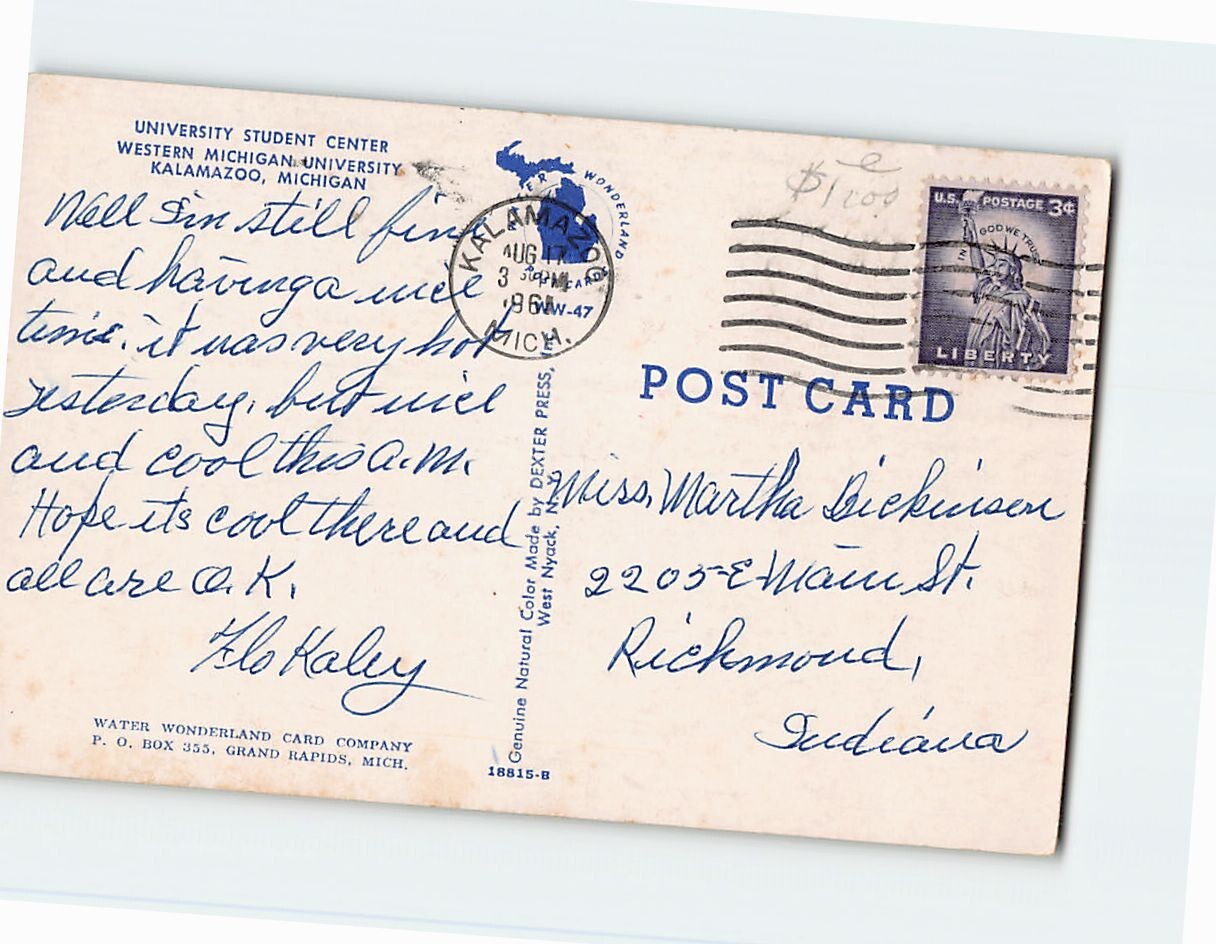 UNIVERSITY STUDENT CENTER
WESTERN MICHIGAN UNIVERSITY
KALAMAZOO, MICHIGAN
Well I'm still fine
and having a nice
time. it was very hot
yesterday, but nice
and cool this a.m.
Hope its cool there and
all are O.K.
Flo Kaley
WATER WONDERLAND CARD COMPANY
P. O. BOX 355, GRAND RAPIDS, MICH.
WONDERLAND
KALAMAZOO
AUG 17
3 PM
MICH.
WW-47
Genuine Natural Color Made by DEXTER PRESS,
West Nyack, N.Y.
18815-B
$1.00
U.S. POSTAGE 3¢
IN GOD WE TRUST
LIBERTY
POST CARD
Miss. Martha Dickinson
2205-E Main St.
Richmond,
Indiana